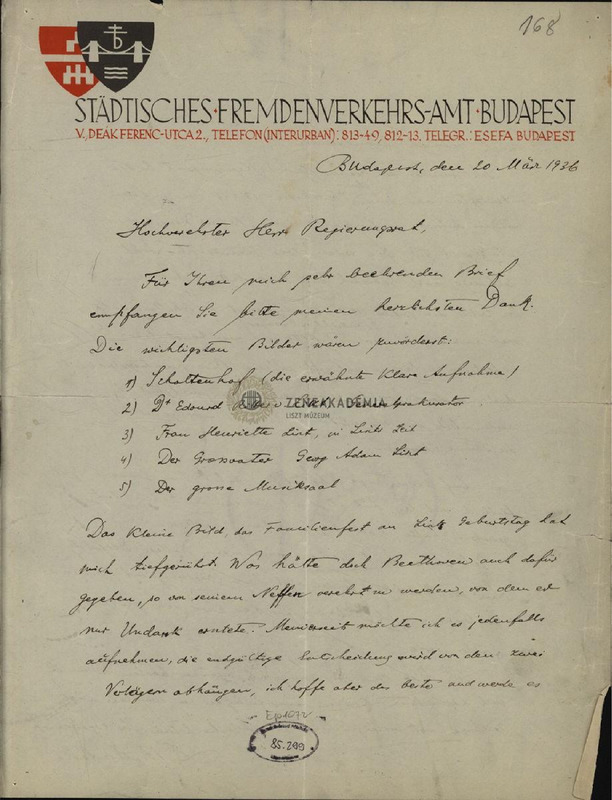 168
STÄDTISCHES·FREMDENVERKEHRS-AMT·BUDAPEST
V., DEÁK FERENC-UTCA 2., TELEFON (INTERURBAN): 813-49, 812-13. TELEGR.: ESEFA BUDAPEST
Budapest, den 20 März 1936
Hochverehrter Herr Regierungsrat,
Für Ihren mich sehr beehrenden Brief
empfangen Sie bitte meinen herzlichsten Dank.
Die wichtigsten Bilder wären zuvörderst:
1) Schottenhof (die erwähnte klare Aufnahme)
2) Dr Eduard
ZENEAKADÉMIA
LISZT MÚZEUM
3) Frau Henriette Liszt, in Liszts Zeit
4) Der Grossvater Georg Adam Liszt
5) Der grosse Musiksaal
Das kleine Bild, das Familienfest an Liszts Geburtstag hat
mich tiefgerührt. Was hätte doch Beethoven auch dafür
gegeben, so von seinem Neffen verehrt zu werden, von dem er
nur Undank erntete. Meinerseits möchte ich es jedenfalls
aufnehmen, die endgültige Entscheidung wird von den zwei
Verlegern abhängen, ich hoffe aber das beste und werde es
85.299